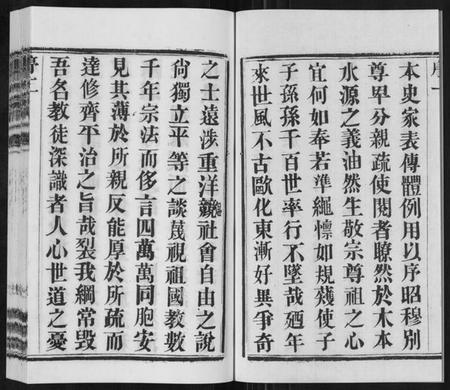 本史家表傳體例用以序昭穆別
尊卑分親疏使閱者瞭然於木本
水源之義油然生敬宗尊祖之心
宜何如奉若準繩懍如規彠使子
子孫孫千百世率行不墜哉廼年
來世風不古歐化東漸好異爭奇
之士遠涉重洋競社會自由之說
尙獨立平等之談蔑視祖國數
千年宗法而侈言四萬萬同胞安
見其薄於所親反能厚於所疏而
達修齊平治之旨哉裂我綱常毀
吾名教徒深識者人心世道之憂
序二